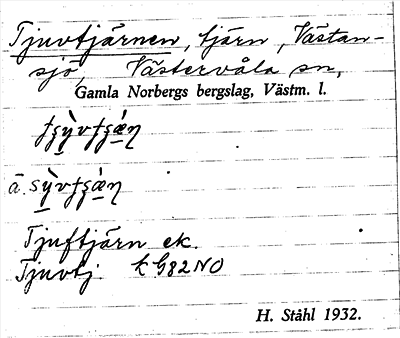 Tjuvtjärnen, tjärn, Västan-
sjö, Västervåla sn,
Gamla Norbergs bergslag, Västm. l.
ä.
Tjuftjärn ek.
Tjuvtj k G82NO
H. Ståhl 1932.